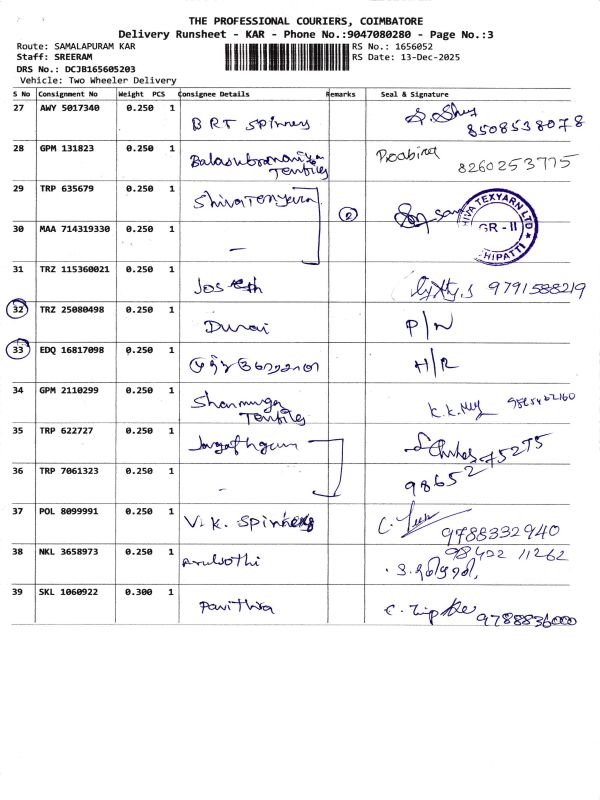 THE PROFESSIONAL COURIERS, COIMBATORE
Delivery Runsheet - KAR - Phone No.:9047080280 - Page No.:3
Route: SAMALAPURAM KAR
RS No.: 1656052
Staff: SREERAM
RS Date: 13-Dec-2025
DRS No.: DCJB165605203
Vehicle: Two Wheeler Delivery
S No Consignment No Weight PCS Consignee Details Remarks Seal & Signature
27 AWY 5017340 0.250 1 BRT Spinners 8508538078
28 GPM 131823 0.250 1 Balasubramaniyan Textiles 8260253775
29 TRP 635679 0.250 1 Shiva Texyarn 2
SHIVA TEXYARN LTD
GR - II
30 MAA 714319330 0.250 1 -
31 TRZ 115360021 0.250 1 Joseth 9791588219
32 TRZ 25080498 0.250 1 Durai P/N
33 EDQ 16817098 0.250 1 H/R
34 GPM 2110299 0.250 1 Shanmuga Textiles K.K.
35 TRP 622727 0.250 1 75275
36 TRP 7061323 0.250 1 - 98652
37 POL 8099991 0.250 1 V.K. Spinners 9788332940
38 NKL 3658973 0.250 1 Arulvothi 98422 11262
39 SKL 1060922 0.300 1 Pavithra 9788836000